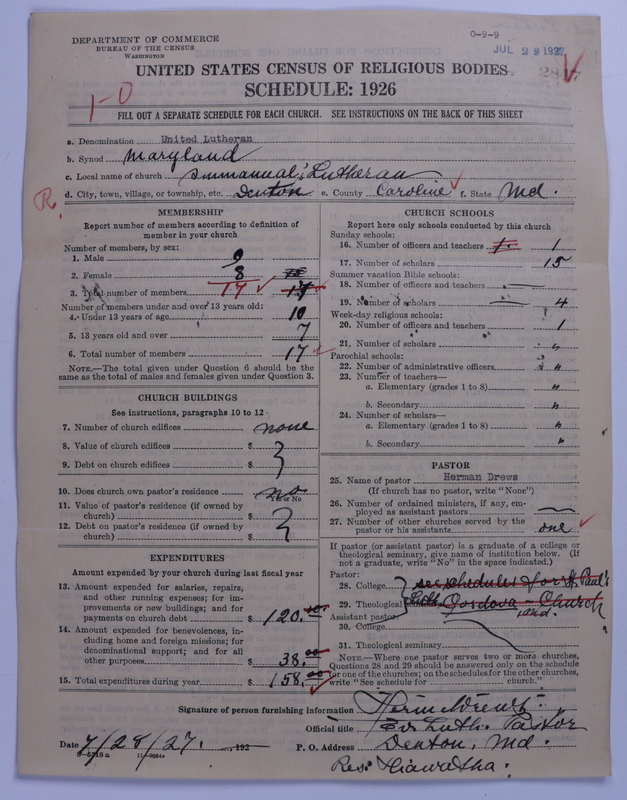 DEPARTMENT OF COMMERCE
BUREAU OF THE CENSUS
WASHINGTON
O-9-9
JUL 29 1927
UNITED STATES CENSUS OF RELIGIOUS BODIES
SCHEDULE: 1926
1-0
FILL OUT A SEPARATE SCHEDULE FOR EACH CHURCH. SEE INSTRUCTIONS ON THE BACK OF THIS SHEET
a. Denomination United Lutheran
b. Synod Maryland
c. Local name of church Immanuel's Lutheran
d. City, town, village, or township, etc. Denton e. County Caroline f. State Md.
R.
MEMBERSHIP
Report number of members according to definition of
member in your church
Number of members, by sex:
1. Male 9
2. Female 8
3. Total number of members 17 17
Number of members under and over 13 years old:
4. Under 13 years of age 10
5. 13 years old and over 7
6. Total number of members 17
NOTE.—The total given under Question 6 should be the
same as the total of males and females given under Question 3.
CHURCH BUILDINGS
See instructions, paragraphs 10 to 12
7. Number of church edifices none
8. Value of church edifices $
9. Debt on church edifices $
10. Does church own pastor's residence no
Yes or No
11. Value of pastor's residence (if owned by
church) $
12. Debt on pastor's residence (if owned by
church) $
EXPENDITURES
Amount expended by your church during last fiscal year
13. Amount expended for salaries, repairs,
and other running expenses; for im-
provements or new buildings; and for
payments on church debt $ 120.00
14. Amount expended for benevolences, in-
cluding home and foreign missions; for
denominational support; and for all
other purposes $ 38.00
15. Total expenditures during year $ 158.00
CHURCH SCHOOLS
Report here only schools conducted by this church
Sunday schools:
16. Number of officers and teachers 1
17. Number of scholars 15
Summer vacation Bible schools:
18. Number of officers and teachers
19. Number of scholars 4
Week-day religious schools:
20. Number of officers and teachers 1
21. Number of scholars
Parochial schools:
22. Number of administrative officers "
23. Number of teachers—
a. Elementary (grades 1 to 8) "
b. Secondary "
24. Number of scholars—
a. Elementary (grades 1 to 8) "
b. Secondary "
PASTOR
25. Name of pastor Herman Drews
(If church has no pastor, write "None")
26. Number of ordained ministers, if any, em-
ployed as assistant pastors
27. Number of other churches served by the
pastor or his assistants one
If pastor (or assistant pastor) is a graduate of a college or
theological seminary, give name of institution below. (If
not a graduate, write "No" in the space indicated.)
Pastor:
28. College see schedules for St. Paul's
29. Theological Luth. Cordova - Church
Md.
Assistant pastor:
30. College
31. Theological seminary
NOTE.—Where one pastor serves two or more churches,
Questions 28 and 29 should be answered only on the schedule
for one of the churches; on the schedules for the other churches,
write "See schedule for church."
Signature of person furnishing information Herm. Drews.
Official title Ev. Luth. Pastor
Date 7/28/27. 192 P. O. Address Denton, Md.
Res: Hiawatha.